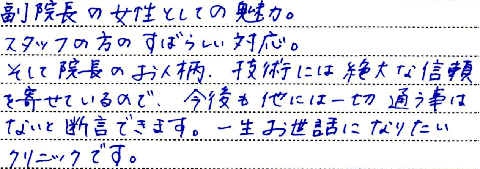 副院長の女性としての魅力。
スタッフの方のすばらしい対応。
そして院長のお人柄、技術には絶大な信頼
を寄せているので、今後も他には一切通う事は
ないと断言できます。一生お世話になりたい
クリニックです。